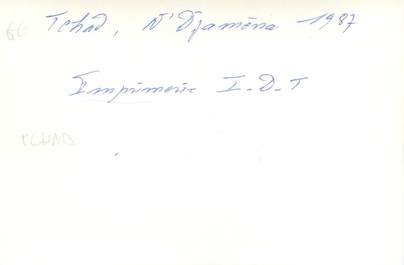 Tchad, N'Djaména 1987
Imprimerie I-D-T
TCHAD